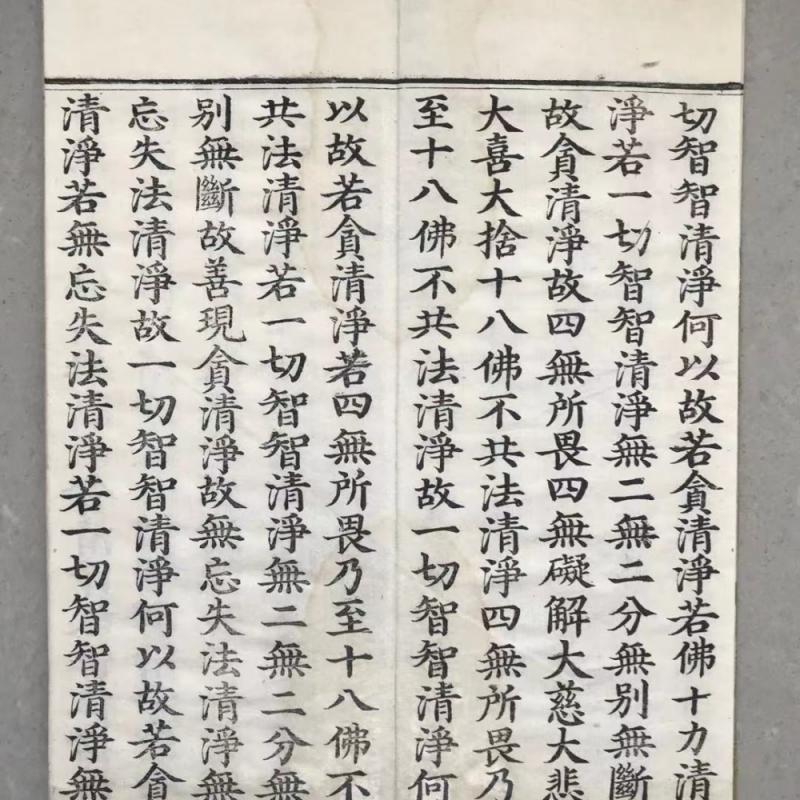 切智智清淨何以故若貪清淨若佛十力清
淨若一切智智清淨無二無二分無別無斷
故貪清淨故四無所畏四無礙解大慈大悲
大喜大捨十八佛不共法清淨四無所畏乃
至十八佛不共法清淨故一切智智清淨何
以故若貪清淨若四無所畏乃至十八佛不
共法清淨若一切智智清淨無二無二分無
別無斷故善現貪清淨故無忘失法清淨無
忘失法清淨故一切智智清淨何以故若貪
清淨若無忘失法清淨若一切智智清淨無